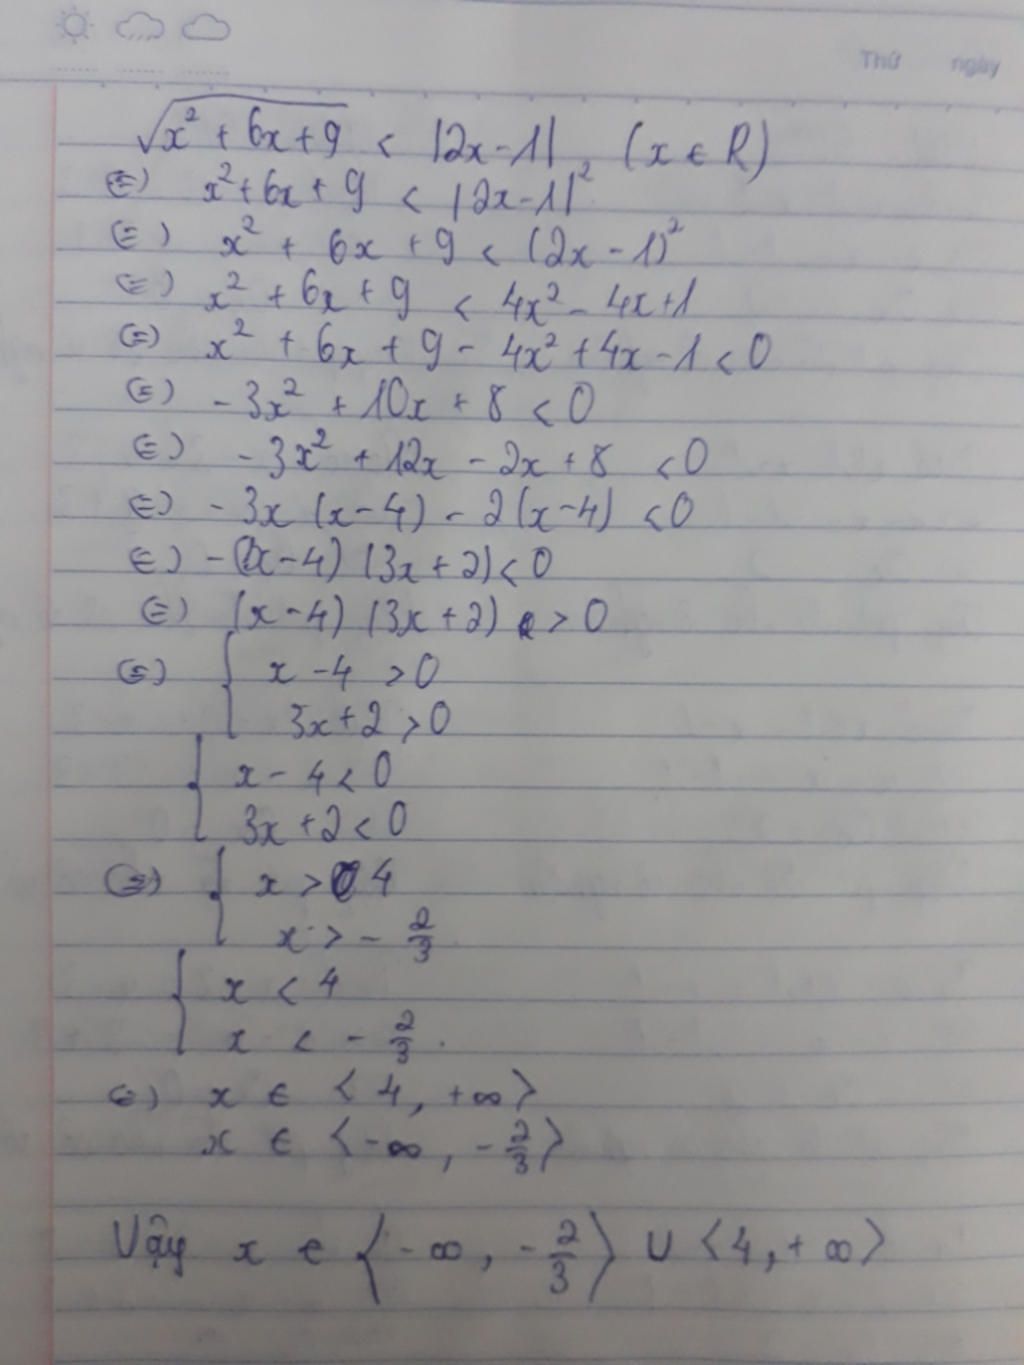 Thứ ngày
√x² + 6x + 9 < |2x - 1|, (x ∈ R)
(=) x² + 6x + 9 < |2x - 1|²
(=) x² + 6x + 9 < (2x - 1)²
(=) x² + 6x + 9 < 4x² - 4x + 1
(=) x² + 6x + 9 - 4x² + 4x - 1 < 0
(=) -3x² + 10x + 8 < 0
(=) -3x² + 12x - 2x + 8 < 0
(=) -3x (x - 4) - 2(x - 4) < 0
(=) -(x - 4) (3x + 2) < 0
(=) (x - 4) (3x + 2) > 0
(=) { x - 4 > 0
3x + 2 > 0
{ x - 4 < 0
3x + 2 < 0
(=) { x > 4
x > - 2/3
{ x < 4
x < - 2/3.
(=) x ∈ ⟨4, +∞⟩
x ∈ ⟨-∞, -2/3⟩
Vậy x ∈ ⟨-∞, -2/3⟩ ∪ ⟨4, +∞⟩